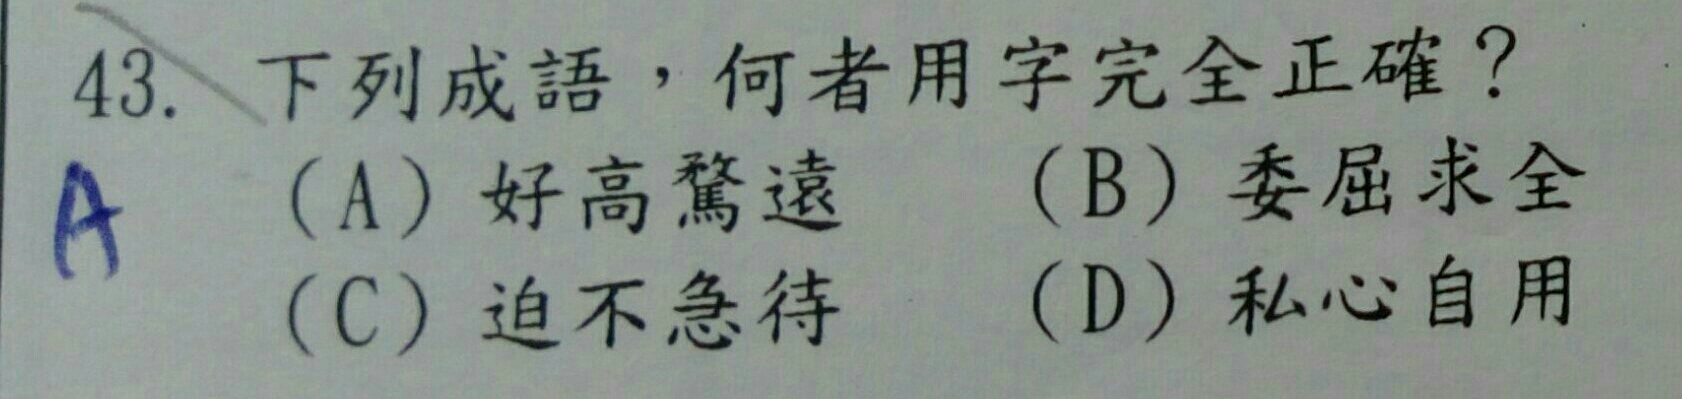 43. 下列成語，何者用字完全正確？
A (A) 好高騖遠 (B) 委屈求全
(C) 迫不急待 (D) 私心自用